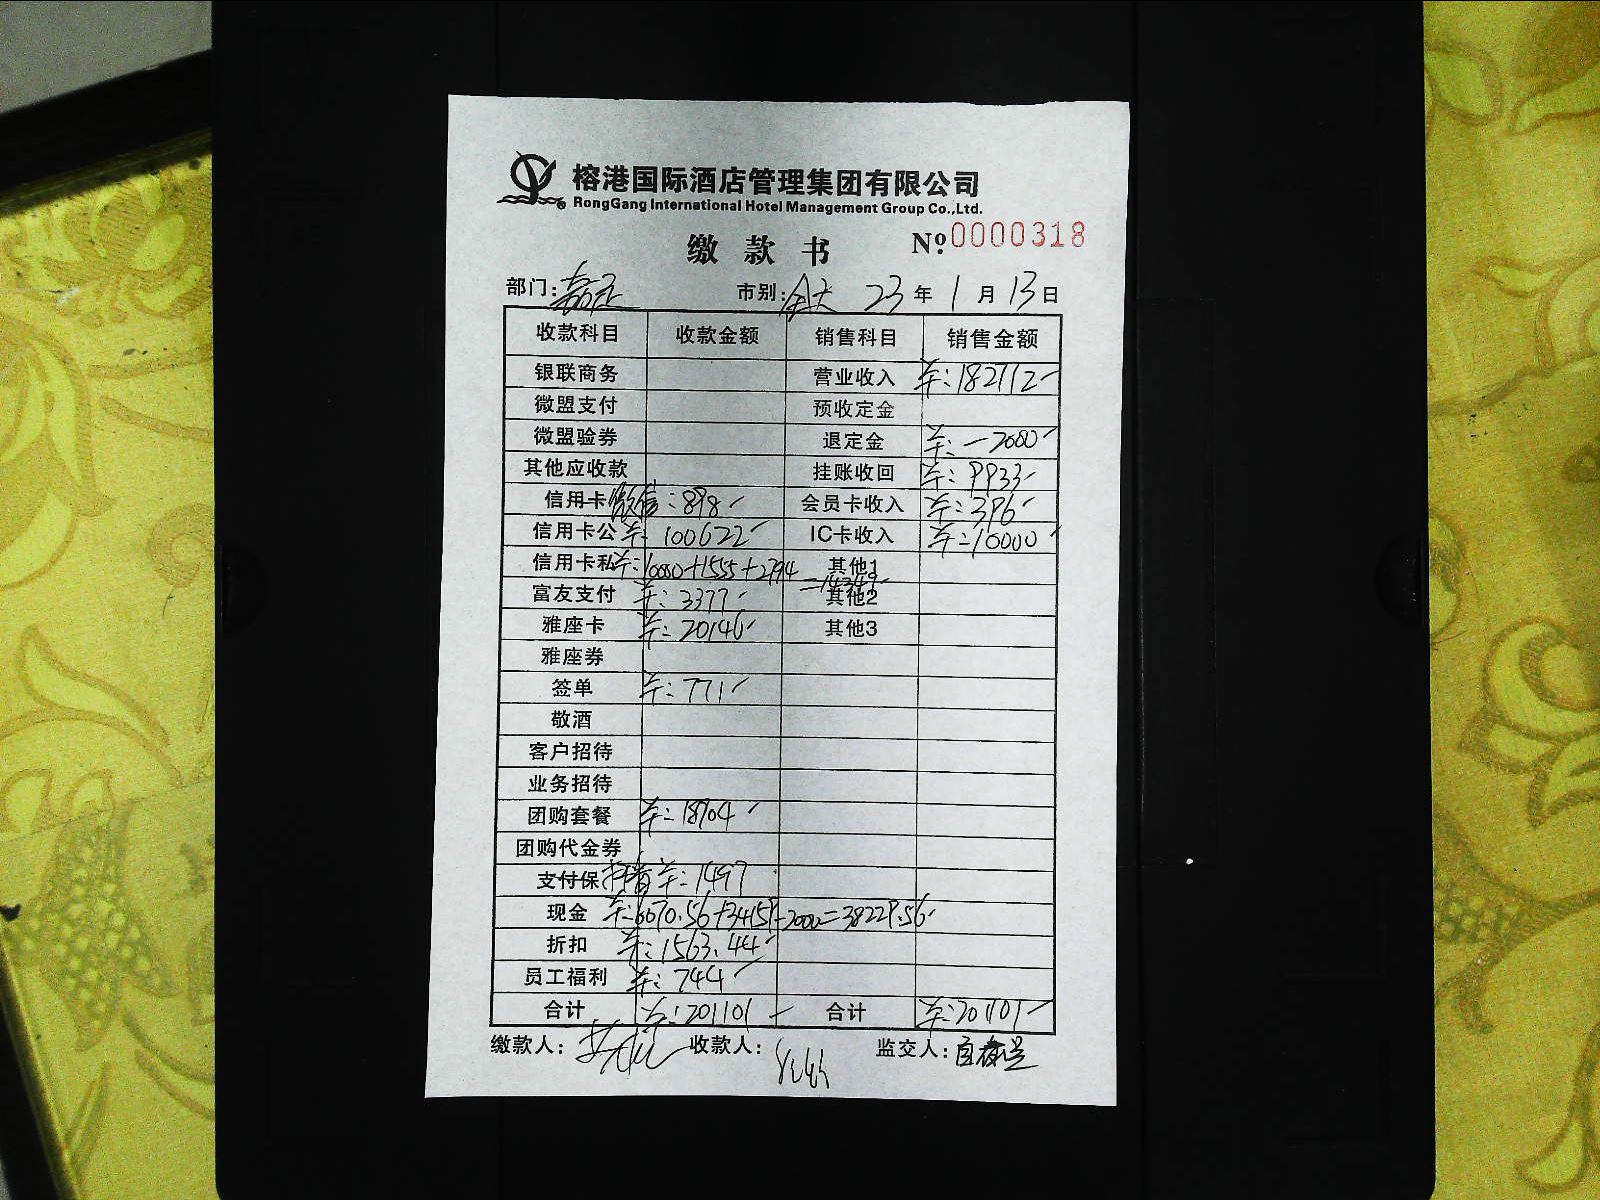 榕港国际酒店管理集团有限公司
RongGang International Hotel Management Group Co.,Ltd.
缴款书 №:0000318
部门:嘉定 市别:全天 23年1月13日
收款科目 收款金额 销售科目 销售金额
银联商务 营业收入 羊:182772
微盟支付 预收定金
微盟验券 退定金 羊:-2000
其他应收款 挂账收回 羊:9933
信用卡 微信:898 会员卡收入 羊:396
信用卡公 羊:100622 IC卡收入 羊:10000
信用卡私 羊:10000+1555+2794=14349 其他1
富友支付 羊:3377 其他2
雅座卡 羊:20146 其他3
雅座券
签单 羊:771
敬酒
客户招待
业务招待
团购套餐 羊:18904
团购代金券
支付保 抖音 羊:1497
现金 羊:6070.56+34159-2000=38229.56
折扣 羊:1563.44
员工福利 羊:744
合计 羊:201101 合计 羊:201101
缴款人: 收款人: 监交人: